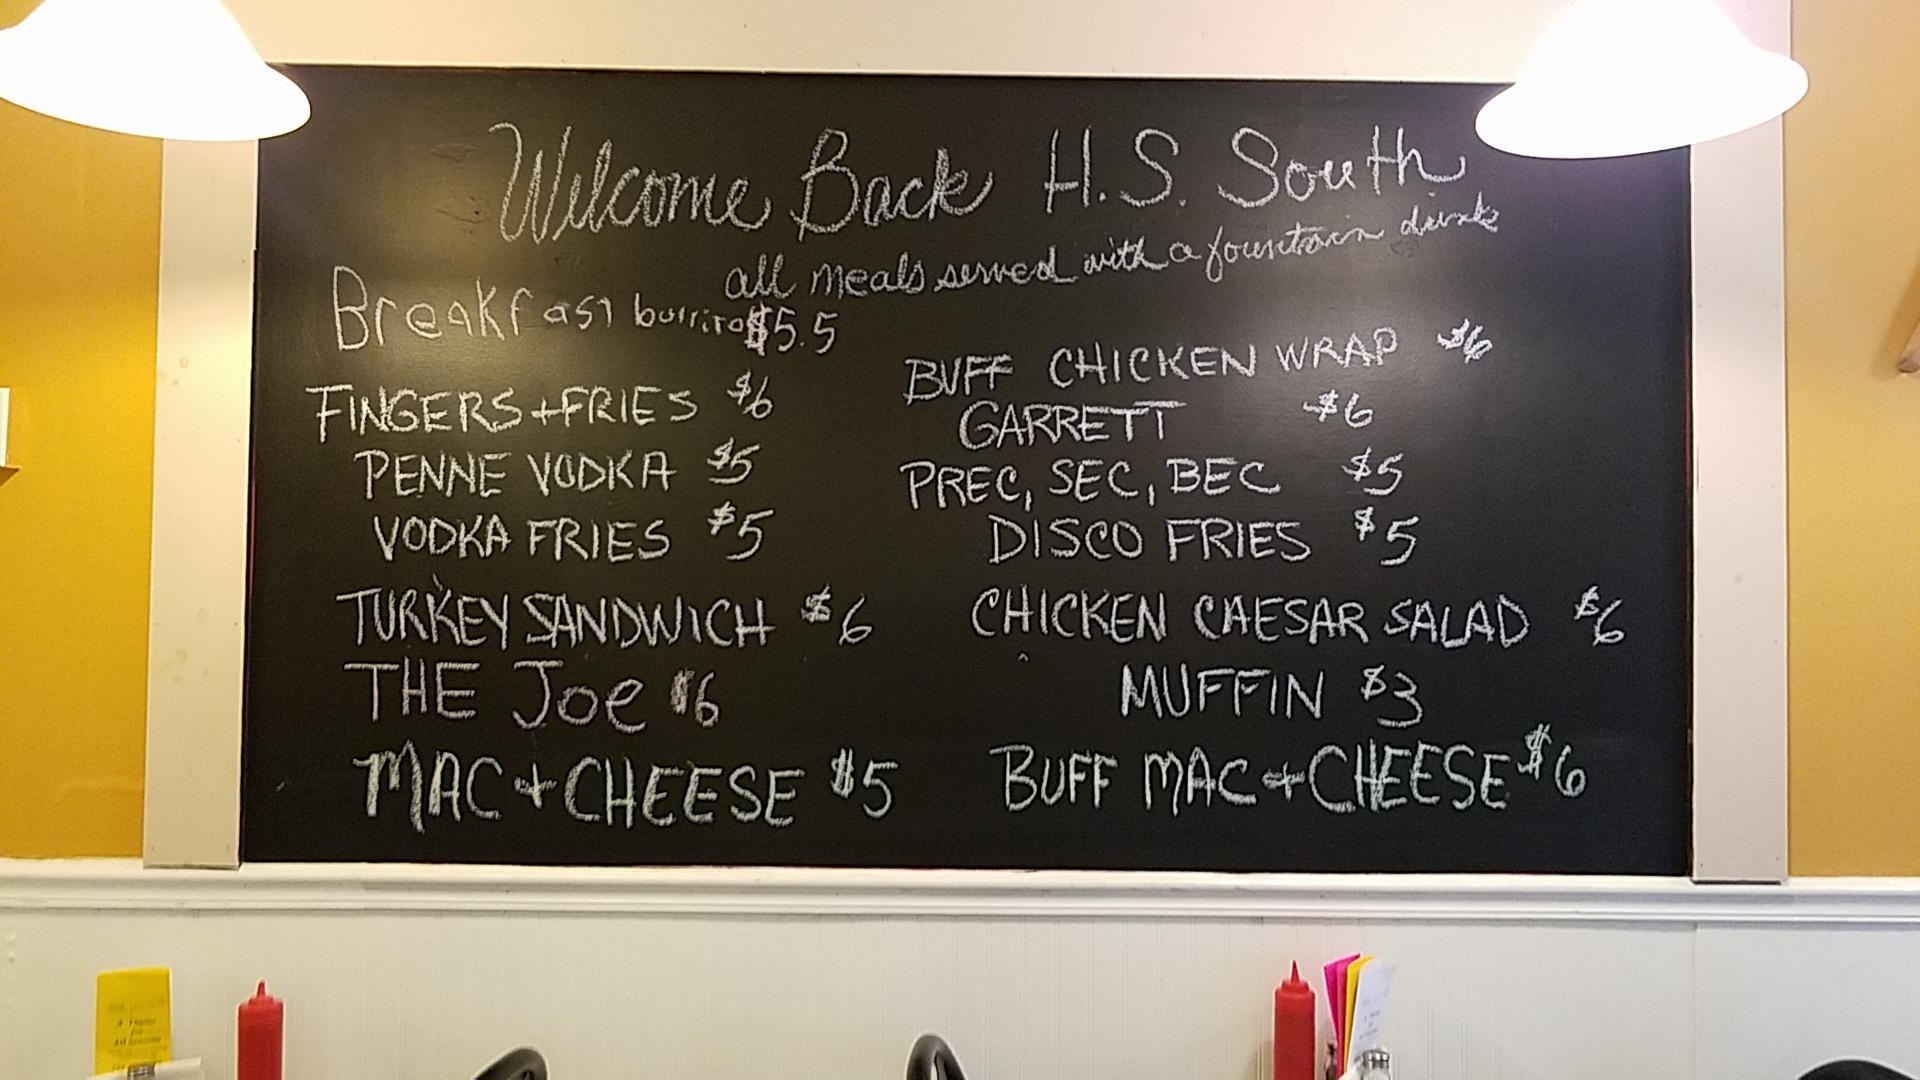 Welcome Back H.S. South
all meals served with a fountain drink
Breakfast burrito $5.5
FINGERS + FRIES $6
PENNE VODKA $5
VODKA FRIES $5
TURKEY SANDWICH $6
THE Joe $6
MAC + CHEESE $5
BUFF CHICKEN WRAP $6
GARRETT $6
PREC, SEC, BEC $5
DISCO FRIES $5
CHICKEN CAESAR SALAD $6
MUFFIN $3
BUFF MAC + CHEESE $6